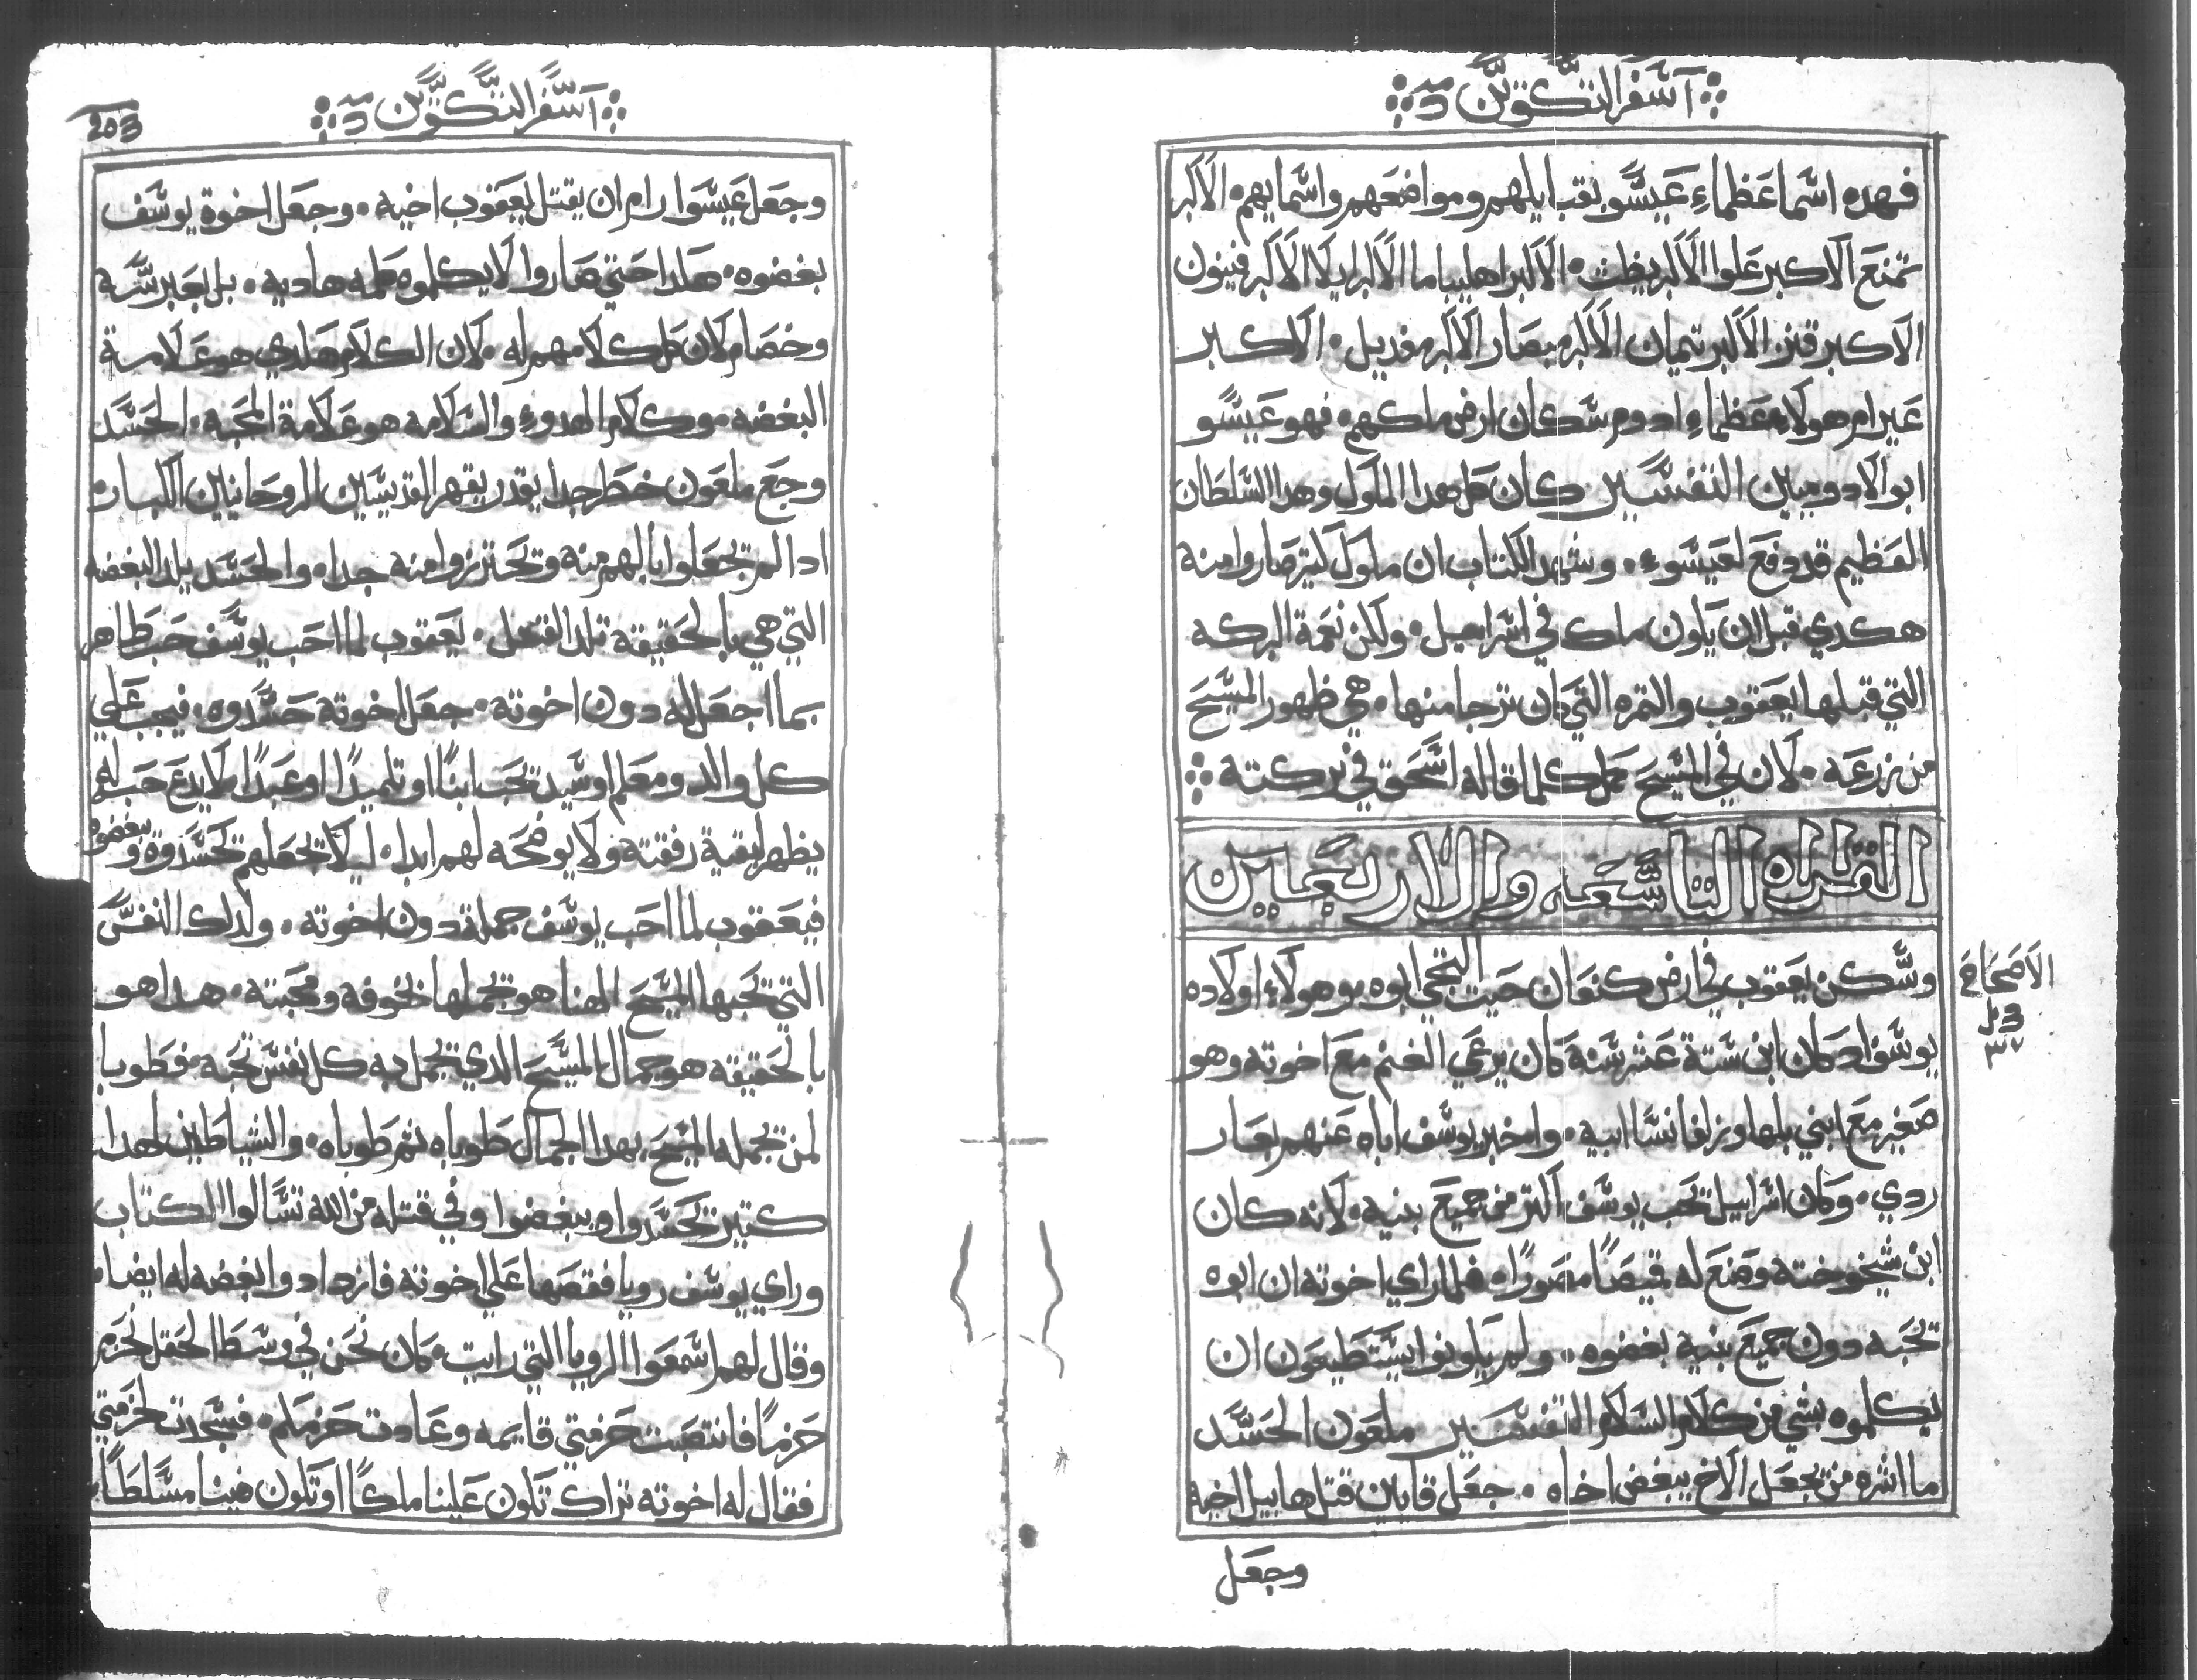 آسفر التكوين
فهده اسما عظماء عيسو بقبايلهم ومواضعهم واسمايهم. الاكبر
تمنع الاكبر علوا الاكبر يظت. الاكبر اهليباما الاكبر ايلا الاكبر فينون
الاكبر قنز الاكبر تيمان الاكبر مبصار الاكبر مغديل. الاكبر
عيرام هولاء عظماء ادوم سكان ارض ملكهم. فهو عيسو
ابو الادوميين التفسير كان كل هدا الملوك وهدا السلطان
العظيم قد دفع لعيسوء. وشهد الكتاب ان ملوك كتير صاروا منه
هكدي قبل ان يكون ملك في اسراييل. ولكن نعمة البركه
التي قبلها يعقوب والتمره التي كان ترجا منها. هي ظهور المسيح
من زرعه. لان في المسيح كمل كلما قاله اسحق في بركته
القراه التاسعه والاربعين
وسكن يعقوب في ارض كنعان حيت التجي ابوه. وهولاء اولاده
يوسف اد كان ابن ستة عشر سنه كان يرعي الغنم مع اخوته وهو
صغير مع ابني بلها وزلفا نسا ابيه. واخبر يوسف اباه عنهم بعار
ردي. وكان اسراييل تحب يوسف اكتر من جميع بنيه. لانه كان
ابن شيخوخته وصنع له قيصًا مصورًا. فلما راي اخوته ان ابوه
تحبه دون جميع بنيه بغضوه. ولم يكونوا يستطيعون ان
يكلموه بشي من كلام السلام التفسير ملعون الحسد
ما اشره من تجعل الاخ يبغض اخاه. جعل قايين قتل هابيل اخيه
وجعل
الاصحاح
٣٧
آسفر التكوين
203
وجعل عيسوا رام ان يقتل يعقوب اخيه. وجعل اخوة يوسف
بغضوه. هكدا حتي صاروا لا يكلموه كلمه هاديه. بل بعبر سه
وخصام كان كل كلامهم له. لان الكلام هكدي هو علامة
البغضه. وكلام الهدوء والسلامه هو علامة المحبه. الحسد
وجع ملعون خطر جدا يقدر يقهر القديسين الروحانيين الكبار.
ادا لم تجعلوا بالهم منه وتحترزوا منه جدا. والحسد يلد البغضه
التي هي بالحقيقة تلد القتل. يعقوب لما احب يوسف حب ظاهر
بما اجعل له دون اخوته. جعل اخوته حسدوه. فيجب علي
كل والد ومعلم او سيد تحب ابنًا او تلميدًا او عبدًا لا يدع حب له
يظهر لبقية رفقته ولا يوضحه لهم ابدا. ليلا تجعلهم تحسدوه ويبغضوه
فيعقوب لما احب يوسف جمله دون اخوته. ولدلك النفس
التي تحبها المسيح الهنا هو تجملها بخوفه ومحبته. هدا هو
بالحقيقه هو جمال المسيح الدي تجمل به كل نفس تحبه. فطوبا
لمن تجمله المسيح بهدا الجمال طوباه تم طوباه. والشياطين لهدا
كتير تحسدوا ويبغضوا وفي قتله من الله تسالوا الكتاب
وراي يوسف رويا فقصها علي اخوته فازدادوا بغضه له ايضا.
وقال لهم اسمعوا الرويا التي رايت. كان نحن في وسط الحقل نحزم
حزمًا فانتصبت حزمتي قايمه وعادت حزمكم. فسجدت لحزمتي
فقال له اخوته تراك تكون علينا ملكًا او تكون فينا مسلطًا